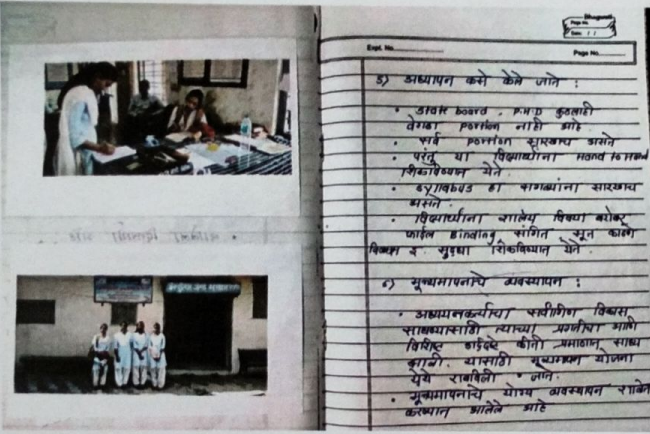 Bhagwati
Page No.
Date: / /
Expt. No.
Page No.
5) अध्यापन कसे केले जाते :
• State board, P.H.D कुठलाही
वेगळा portion नाही आहे.
• सर्व portion सारखाच असतो
• परंतु या विद्यार्थ्यांना Hand to Hand
शिकविण्यात येते.
• Syllabus हा सगळ्यांना सारखाच
असतो.
• विद्यार्थ्यांना शालेय विषया बरोबर
फाईल Binding संगित, सूत काढणे
सुद्धा शिकविण्यात येते.
६) मूल्यमापनाचे व्यवस्थापन :
• अध्ययनकर्त्याचा सर्वांगिण विकास
साधण्यासाठी त्याच्या प्रगतीचा आणि
विशिष्ट उद्दिष्टे कीती प्रमाणात साध्य
झाली. यासाठी मूल्यमापन योजना
येथे राबविली जाते.
• मूल्यमापनाचे योग्य व्यवस्थापन
करण्यात आलेले आहे